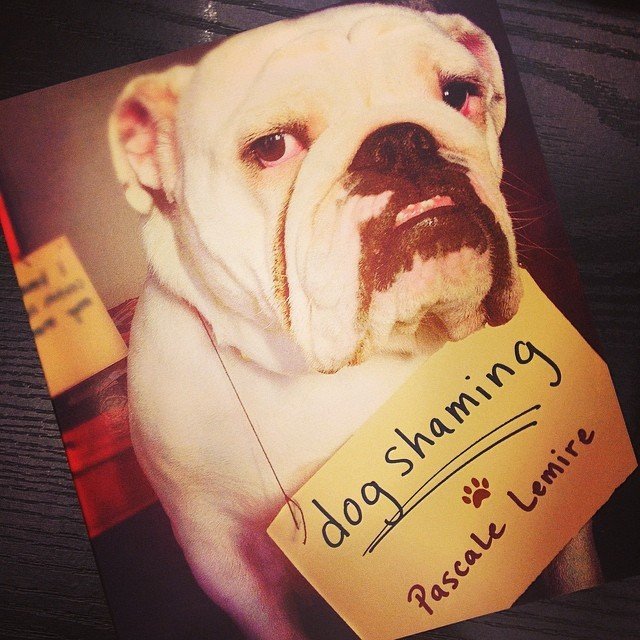 dog shaming
Pascale Lemire